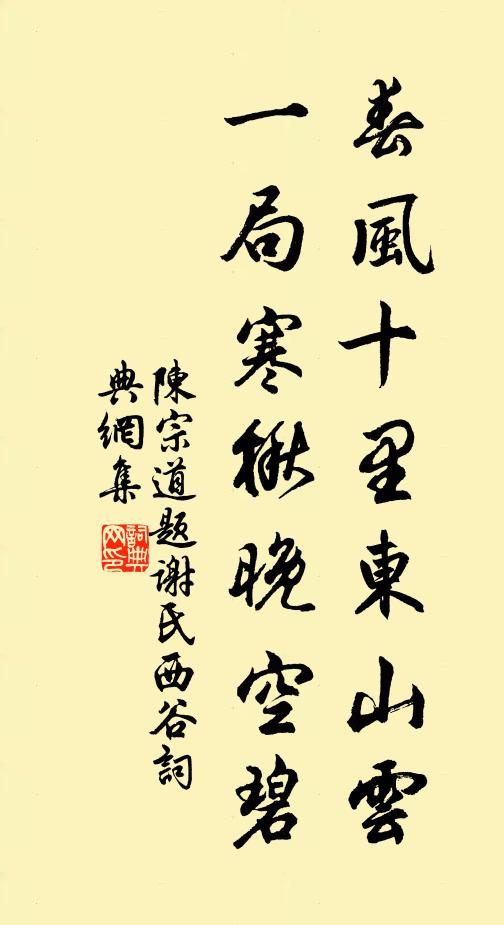 春風十里東山雲
一局寒楸晚空碧
陳宗道題谢氏西谷詞
典網集
詞典
网印